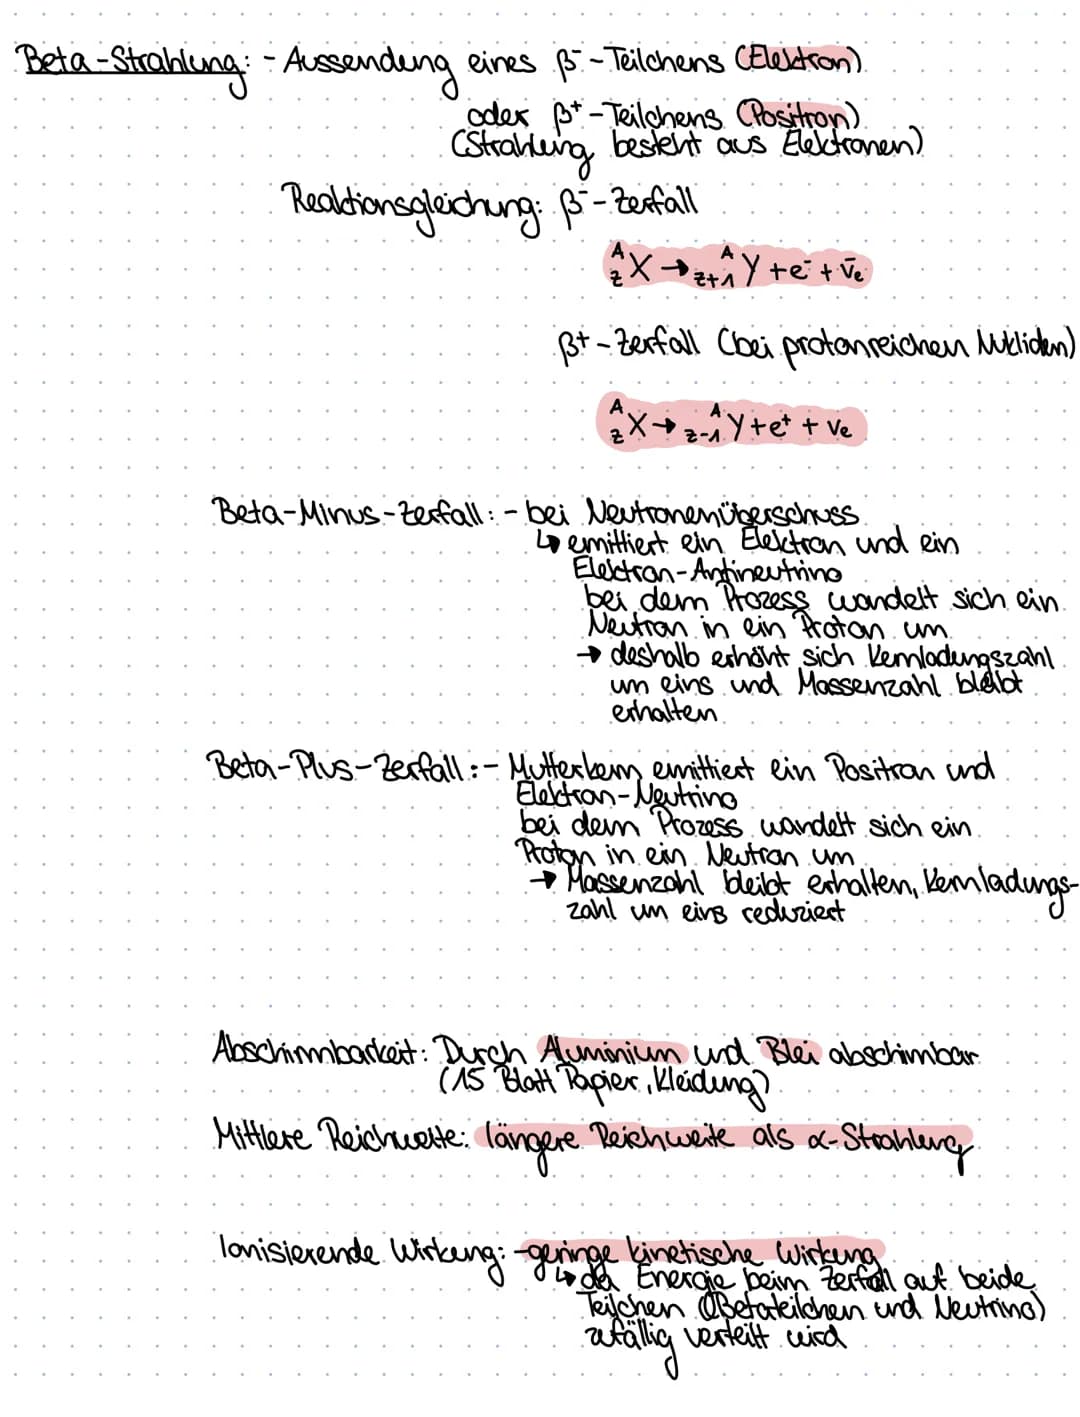 Beta-Strahlung: - Aussendung eines β⁻-Teilchens (Elektron)
oder β⁺-Teilchens (Positron)
(Strahlung besteht aus Elektronen)
Reaktionsgleichung: β⁻-Zerfall
ᴬ_Z X → ᴬ_Z+1 Y + e⁻ + v̄e
β⁺-Zerfall (bei protonreichen Nukliden)
ᴬ_Z X → ᴬ_Z-1 Y + e⁺ + ve
Beta-Minus-Zerfall: - bei Neutronenüberschuss
↳ emittiert ein Elektron und ein
Elektron-Antineutrino
bei dem Prozess wandelt sich ein
Neutron in ein Proton um
→ deshalb erhöht sich Kernladungszahl
um eins und Massenzahl bleibt
erhalten
Beta-Plus-Zerfall: - Mutterkern emittiert ein Positron und
Elektron-Neutrino
bei dem Prozess wandelt sich ein
Proton in ein Neutron um
→ Massenzahl bleibt erhalten, Kernladungs-
zahl um eins reduziert
Abschirmbarkeit: Durch Aluminium und Blei abschirmbar
(15 Blatt Papier, Kleidung)
Mittlere Reichweite: längere Reichweite als α-Strahlung
Ionisierende Wirkung: - geringe kinetische Wirkung
↳ da Energie beim Zerfall auf beide
Teilchen (Betateilchen und Neutrino)
zufällig verteilt wird